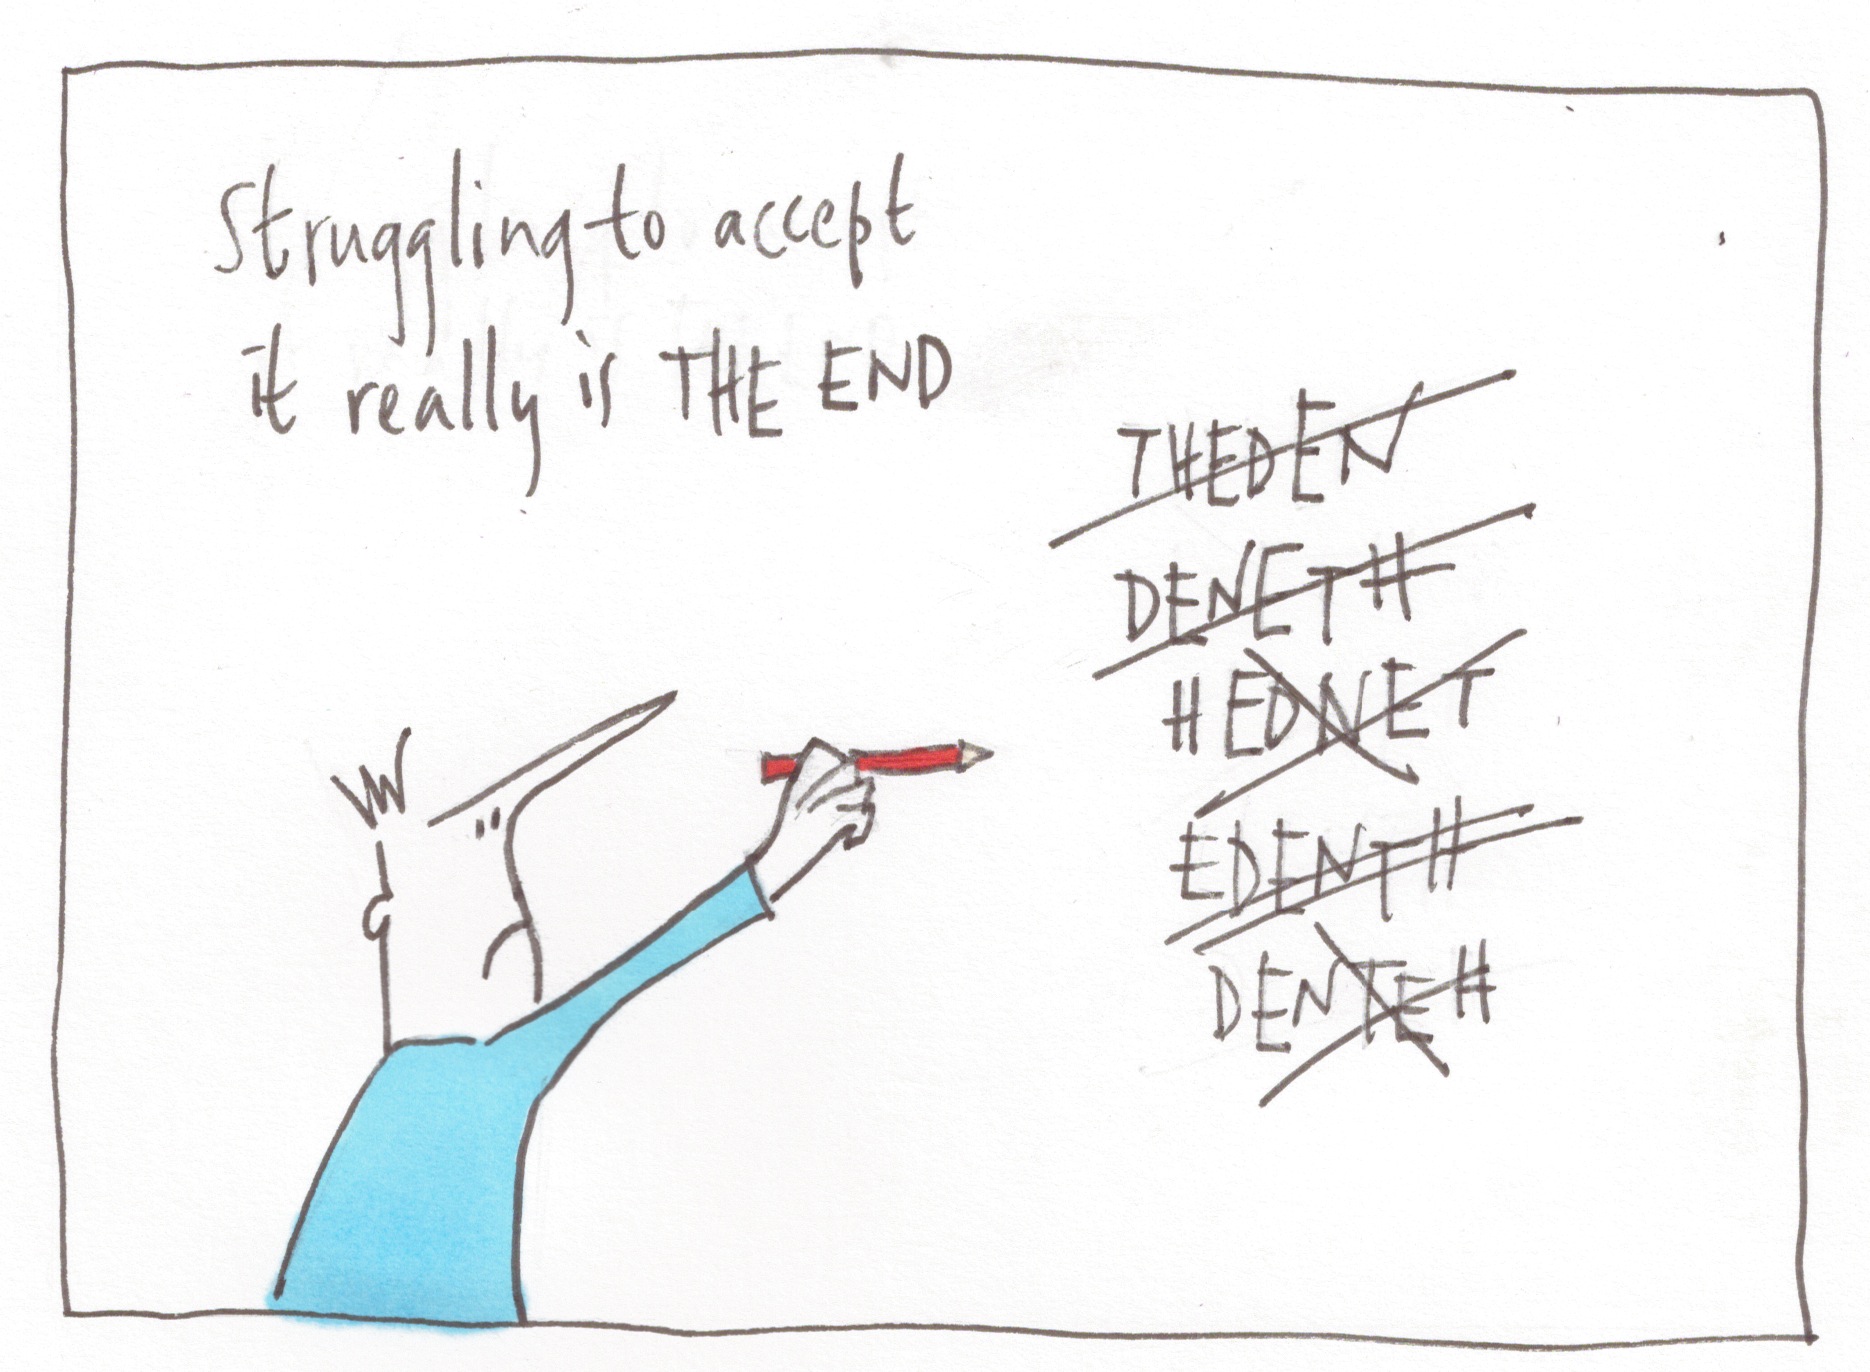 Struggling to accept
it really is THE END
THEDEN
DENETH
HEDNET
EDENTH
DENTEH